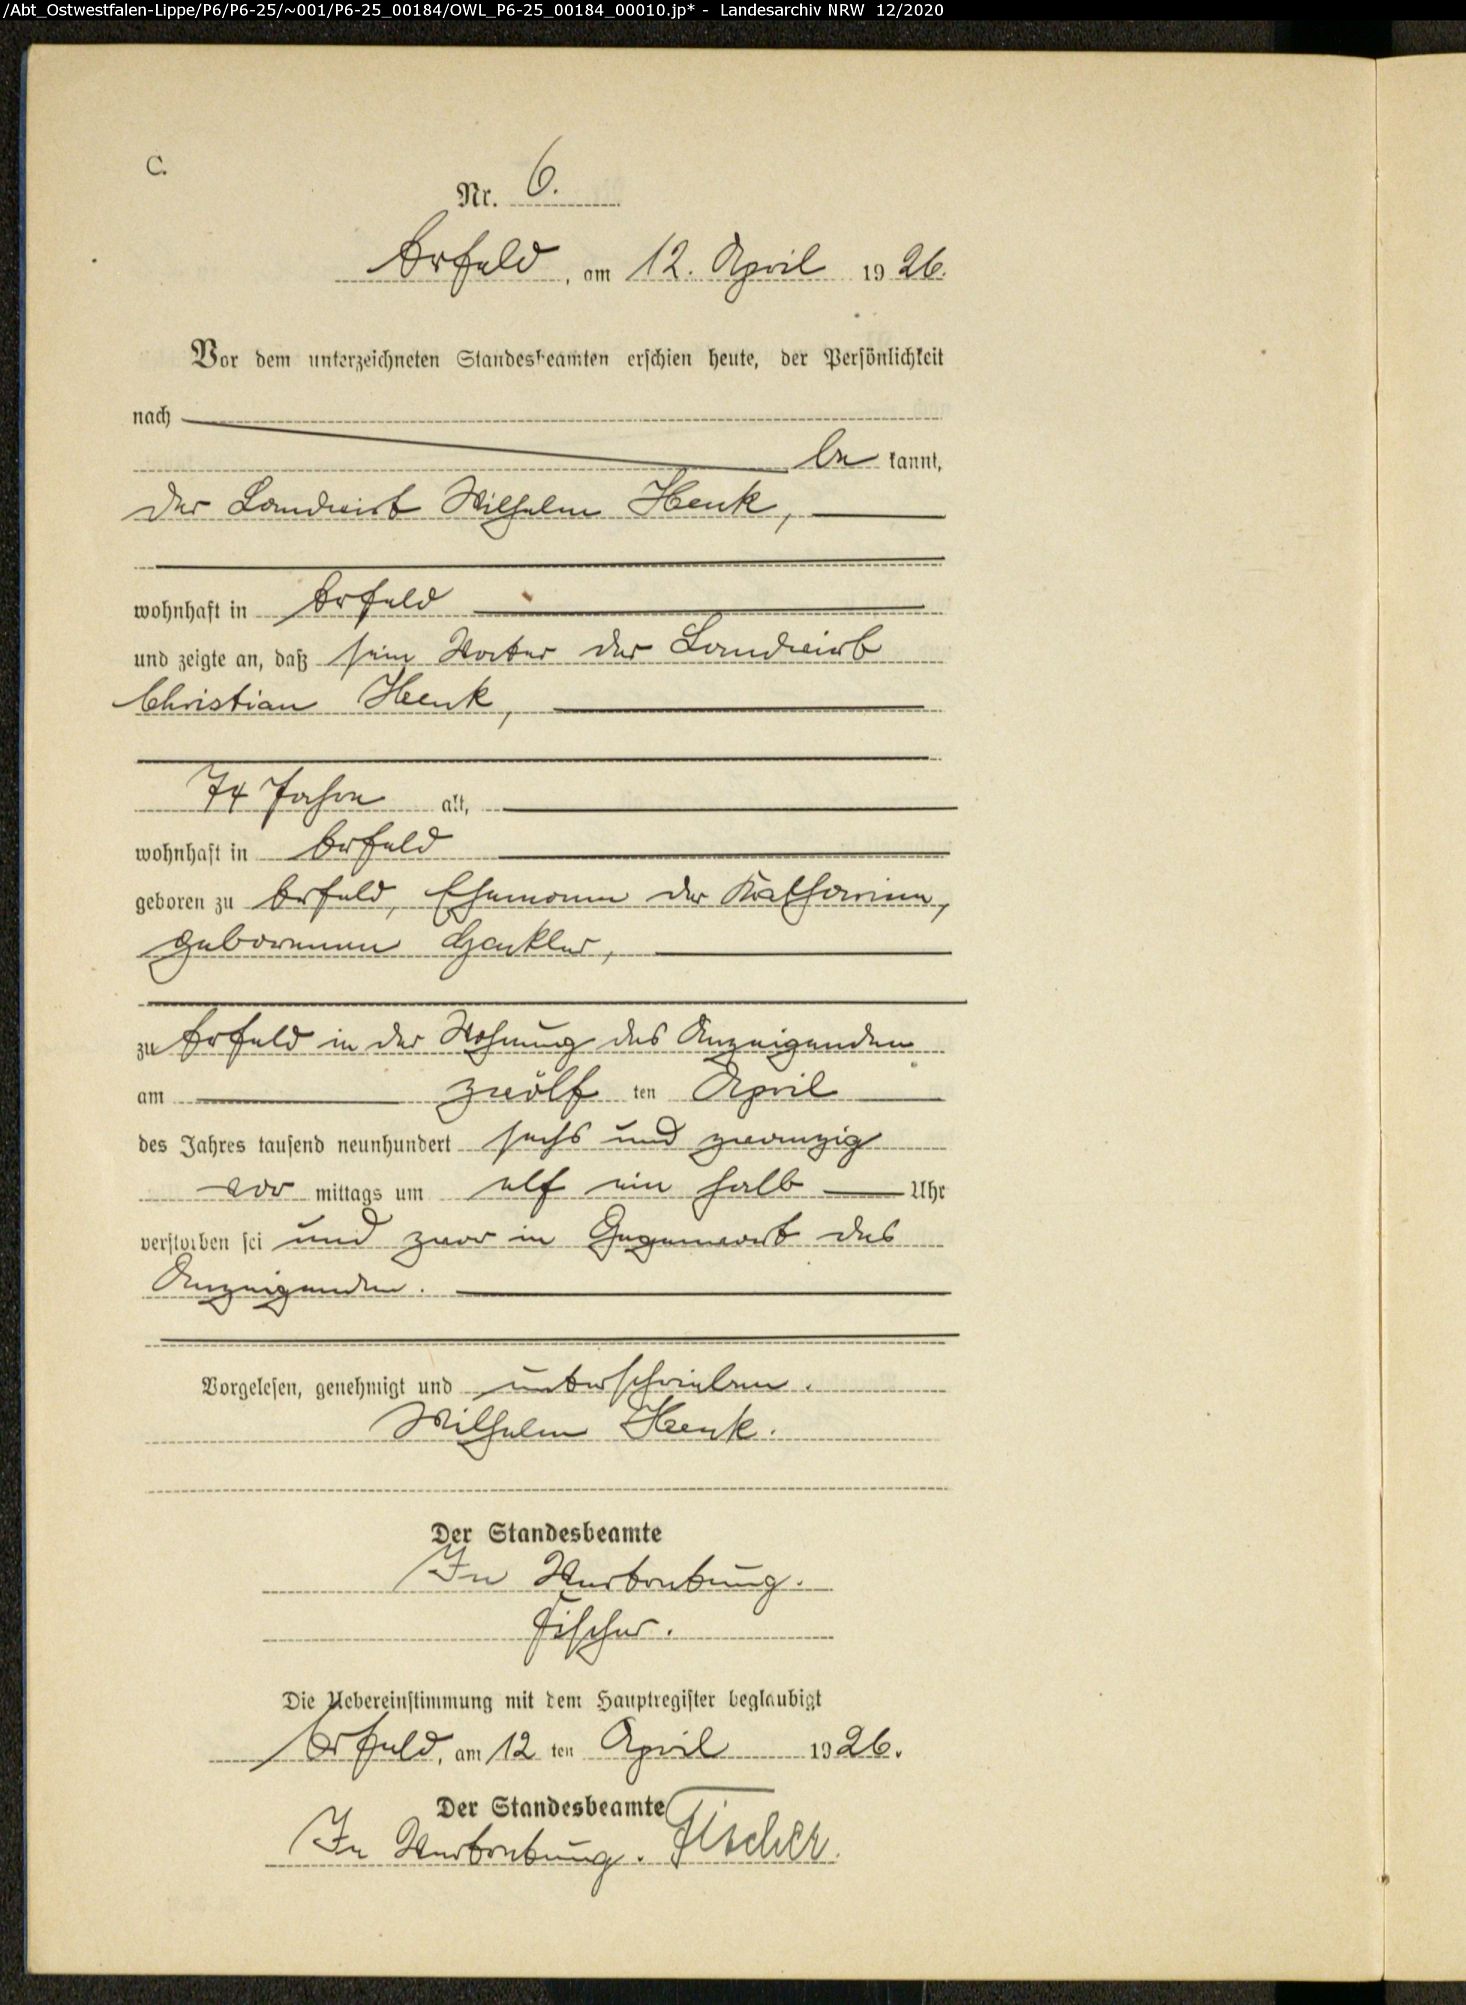 /Abt_Ostwestfalen-Lippe/P6/P6-25/~001/P6-25_00184/OWL_P6-25_00184_00010.jp* - Landesarchiv NRW 12/2020
C.
Nr. 6.
am 12. April 1926.
Vor dem unterzeichneten Standesbeamten erschien heute, der Persönlichkeit
nach
be kannt,
der Landwirt Wilhelm Henk,
wohnhaft in
und zeigte an, daß sein Vater der Landwirt
Christian Henk,
74 Jahre alt,
wohnhaft in
geboren zu Ehemann der Katharina,
geborenen
zu in der Wohnung des Anzeigenden
am zwölf ten April
des Jahres tausend neunhundert sechs und zwanzig
vor mittags um elf ein halb Uhr
verstorben sei und zwar in Gegenwart des
Anzeigenden.
Vorgelesen, genehmigt und unterschrieben.
Wilhelm Henk.
Der Standesbeamte
In Vertretung.
Fischer.
Die Uebereinstimmung mit dem Hauptregister beglaubigt
am 12 ten April 1926.
Der Standesbeamte
In Vertretung. Fischer.